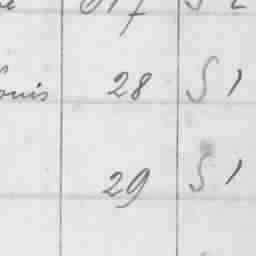 ouis 28 S 1
29 S 1